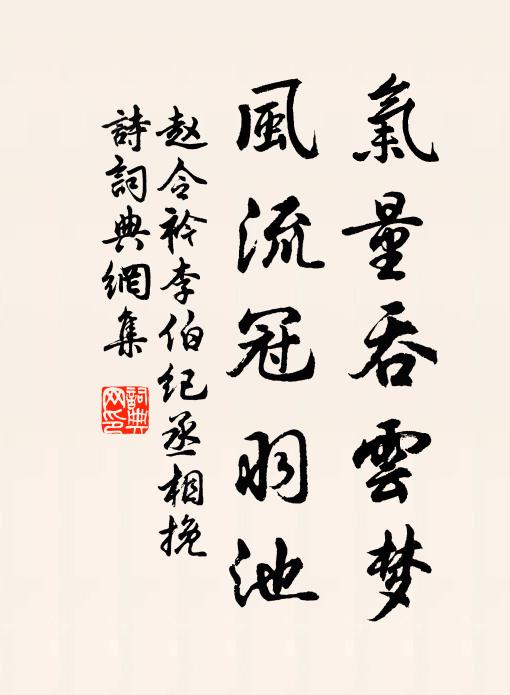 氣量吞雲梦
風流冠羽池
赵令衿李伯纪丞相挽
詩詞典網集
詞典网印